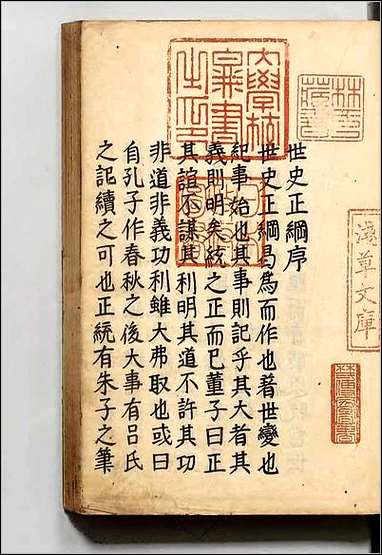 林氏藏書
大學校圖書之印
淺草文庫
世史正綱序
世史正綱曷為而作也著世變也
紀事始也其事則記乎其大者其
義則明矣統之正而已董子曰正
其誼不謀其利明其道不許其功
非道非義功利雖大弗取也或曰
自孔子作春秋之後大事有呂氏
之記續之可也正統有朱子之筆